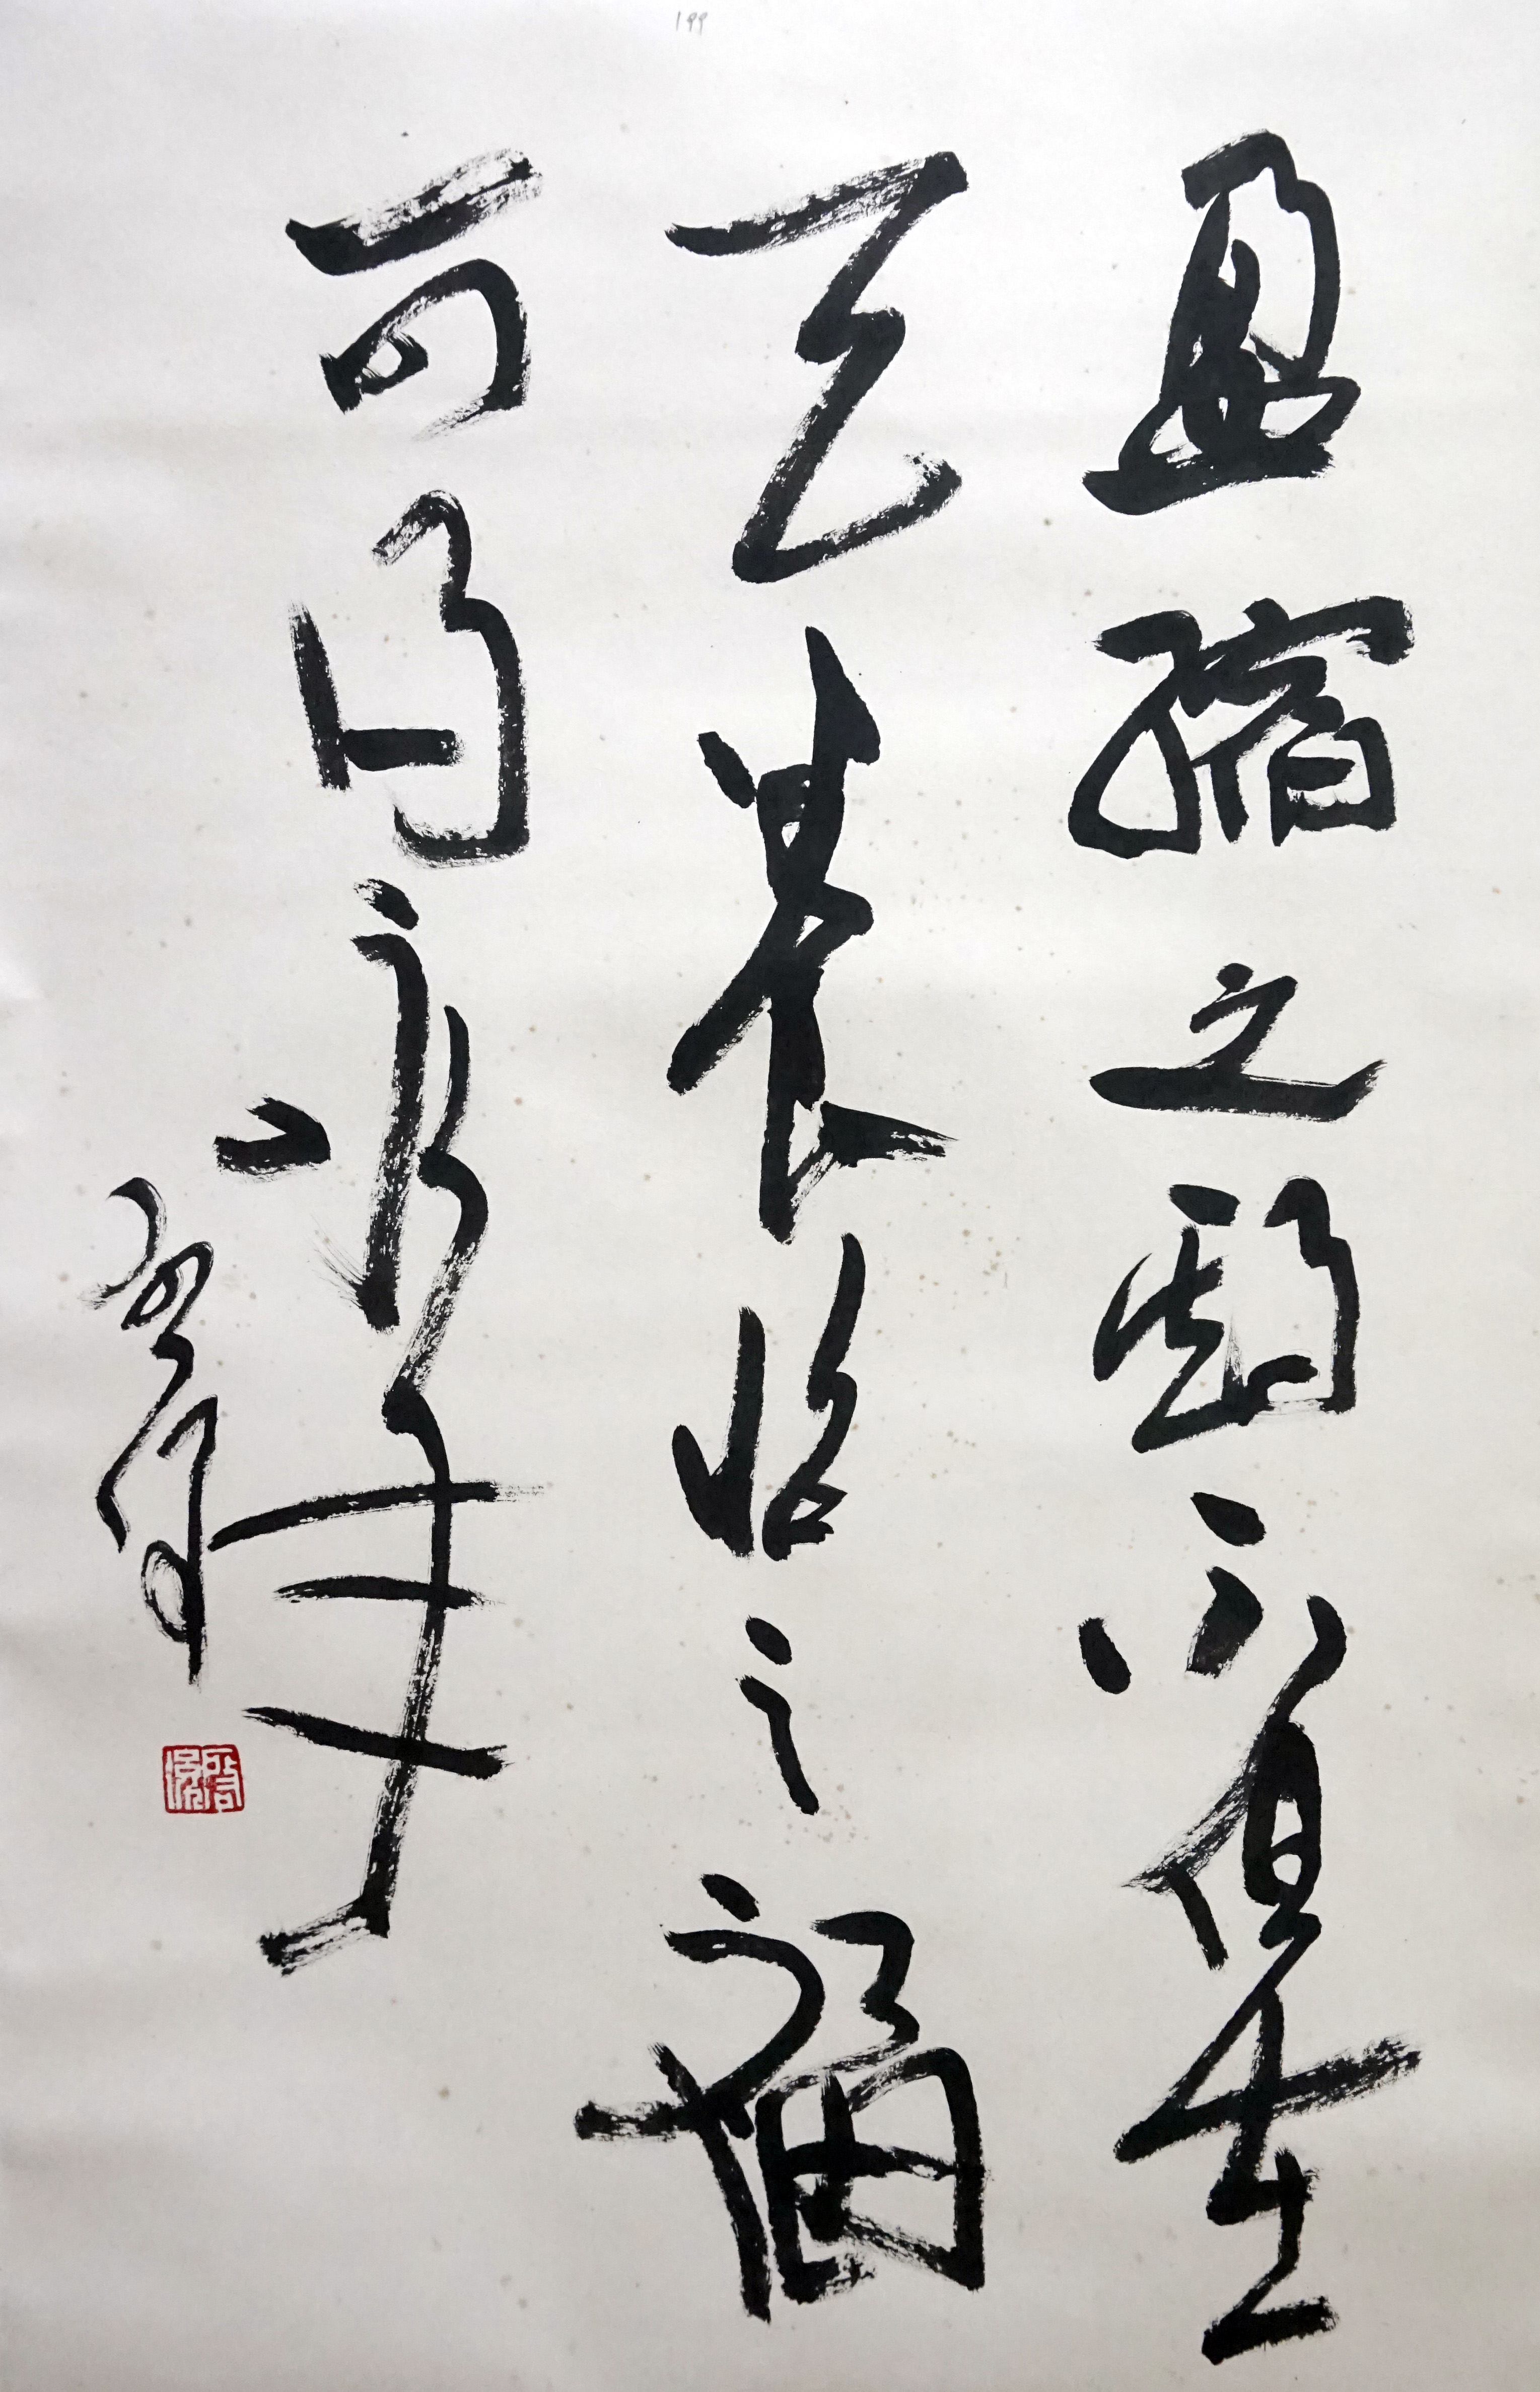 199
盈縮之期不但在
天養怡之福
可得永年